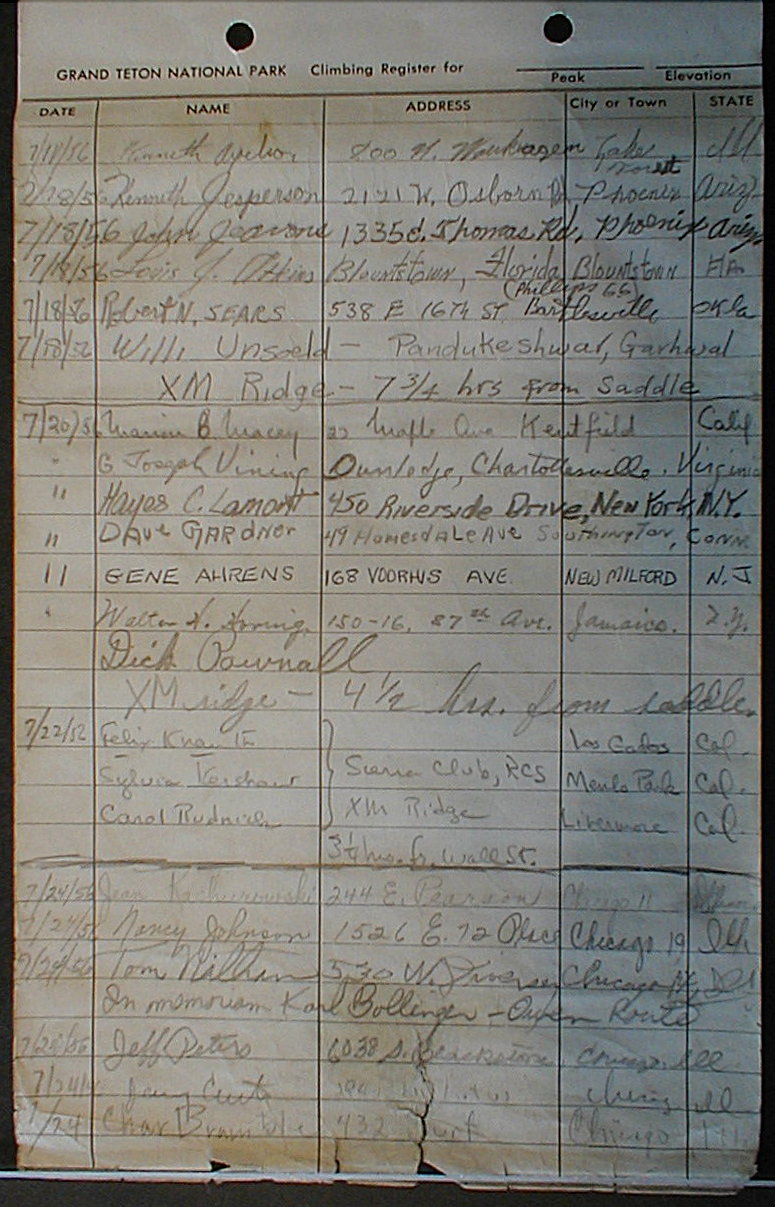 GRAND TETON NATIONAL PARK Climbing Register for
Peak Elevation
DATE NAME ADDRESS City or Town STATE
7/18/56 Kenneth 800 N. Lake Forest Ill
7/18/56 Kenneth Jesperson 2121 W. Osborn Rd Phoenix Ariz
7/18/56 John 1335 E. Thomas Rd, Phoenix Ariz
7/18/56 Louis J. Atkins Blountstown, Florida Blountstown Fla
(Phillips 66)
7/18/56 Robert N. SEARS 538 E 16TH ST. Bartlesville Okla
7/18/56 Willi Unsoeld — Pandukeshwar, Garhwal
XM Ridge — 7 3/4 hrs from Saddle
7/20/56 B. Macey Maple Ave Kentfield Calif
" G Joseph Vining Dunlodge, Charlottesville, Virginia
" Hayes C. Lamont 450 Riverside Drive, New York, N.Y.
" DAVE GARDNER 49 Homesdale Ave Southington, Conn
" GENE AHRENS 168 VOORHIS AVE. NEW MILFORD N.J
" Walter H. 150-16, 87th Ave. Jamaica. N.Y.
Dick Pownall
XM ridge — 4 1/2 hrs. from saddle.
7/22/52 Felix Knauth Los Gatos Cal.
Sylvia Kershaw Sierra Club, RCS Menlo Park Cal.
Carol XM Ridge Livermore Cal.
3 1/4 hrs. fr. Wall St.
7/24/56 Jean 244 E. Pearson Chicago 11
7/24/56 Nancy Johnson 1526 E. 72 Place Chicago 19 Ill
7/24/56 Tom 530 W. Diversey Chicago Ill
In memoriam Karl Bollinger - Owen Route
7/24/56 Jeff Peters 6038 S. Blackstone Chicago, Ill
7/24 Ill
7/24 Char 432 Chicago Ill